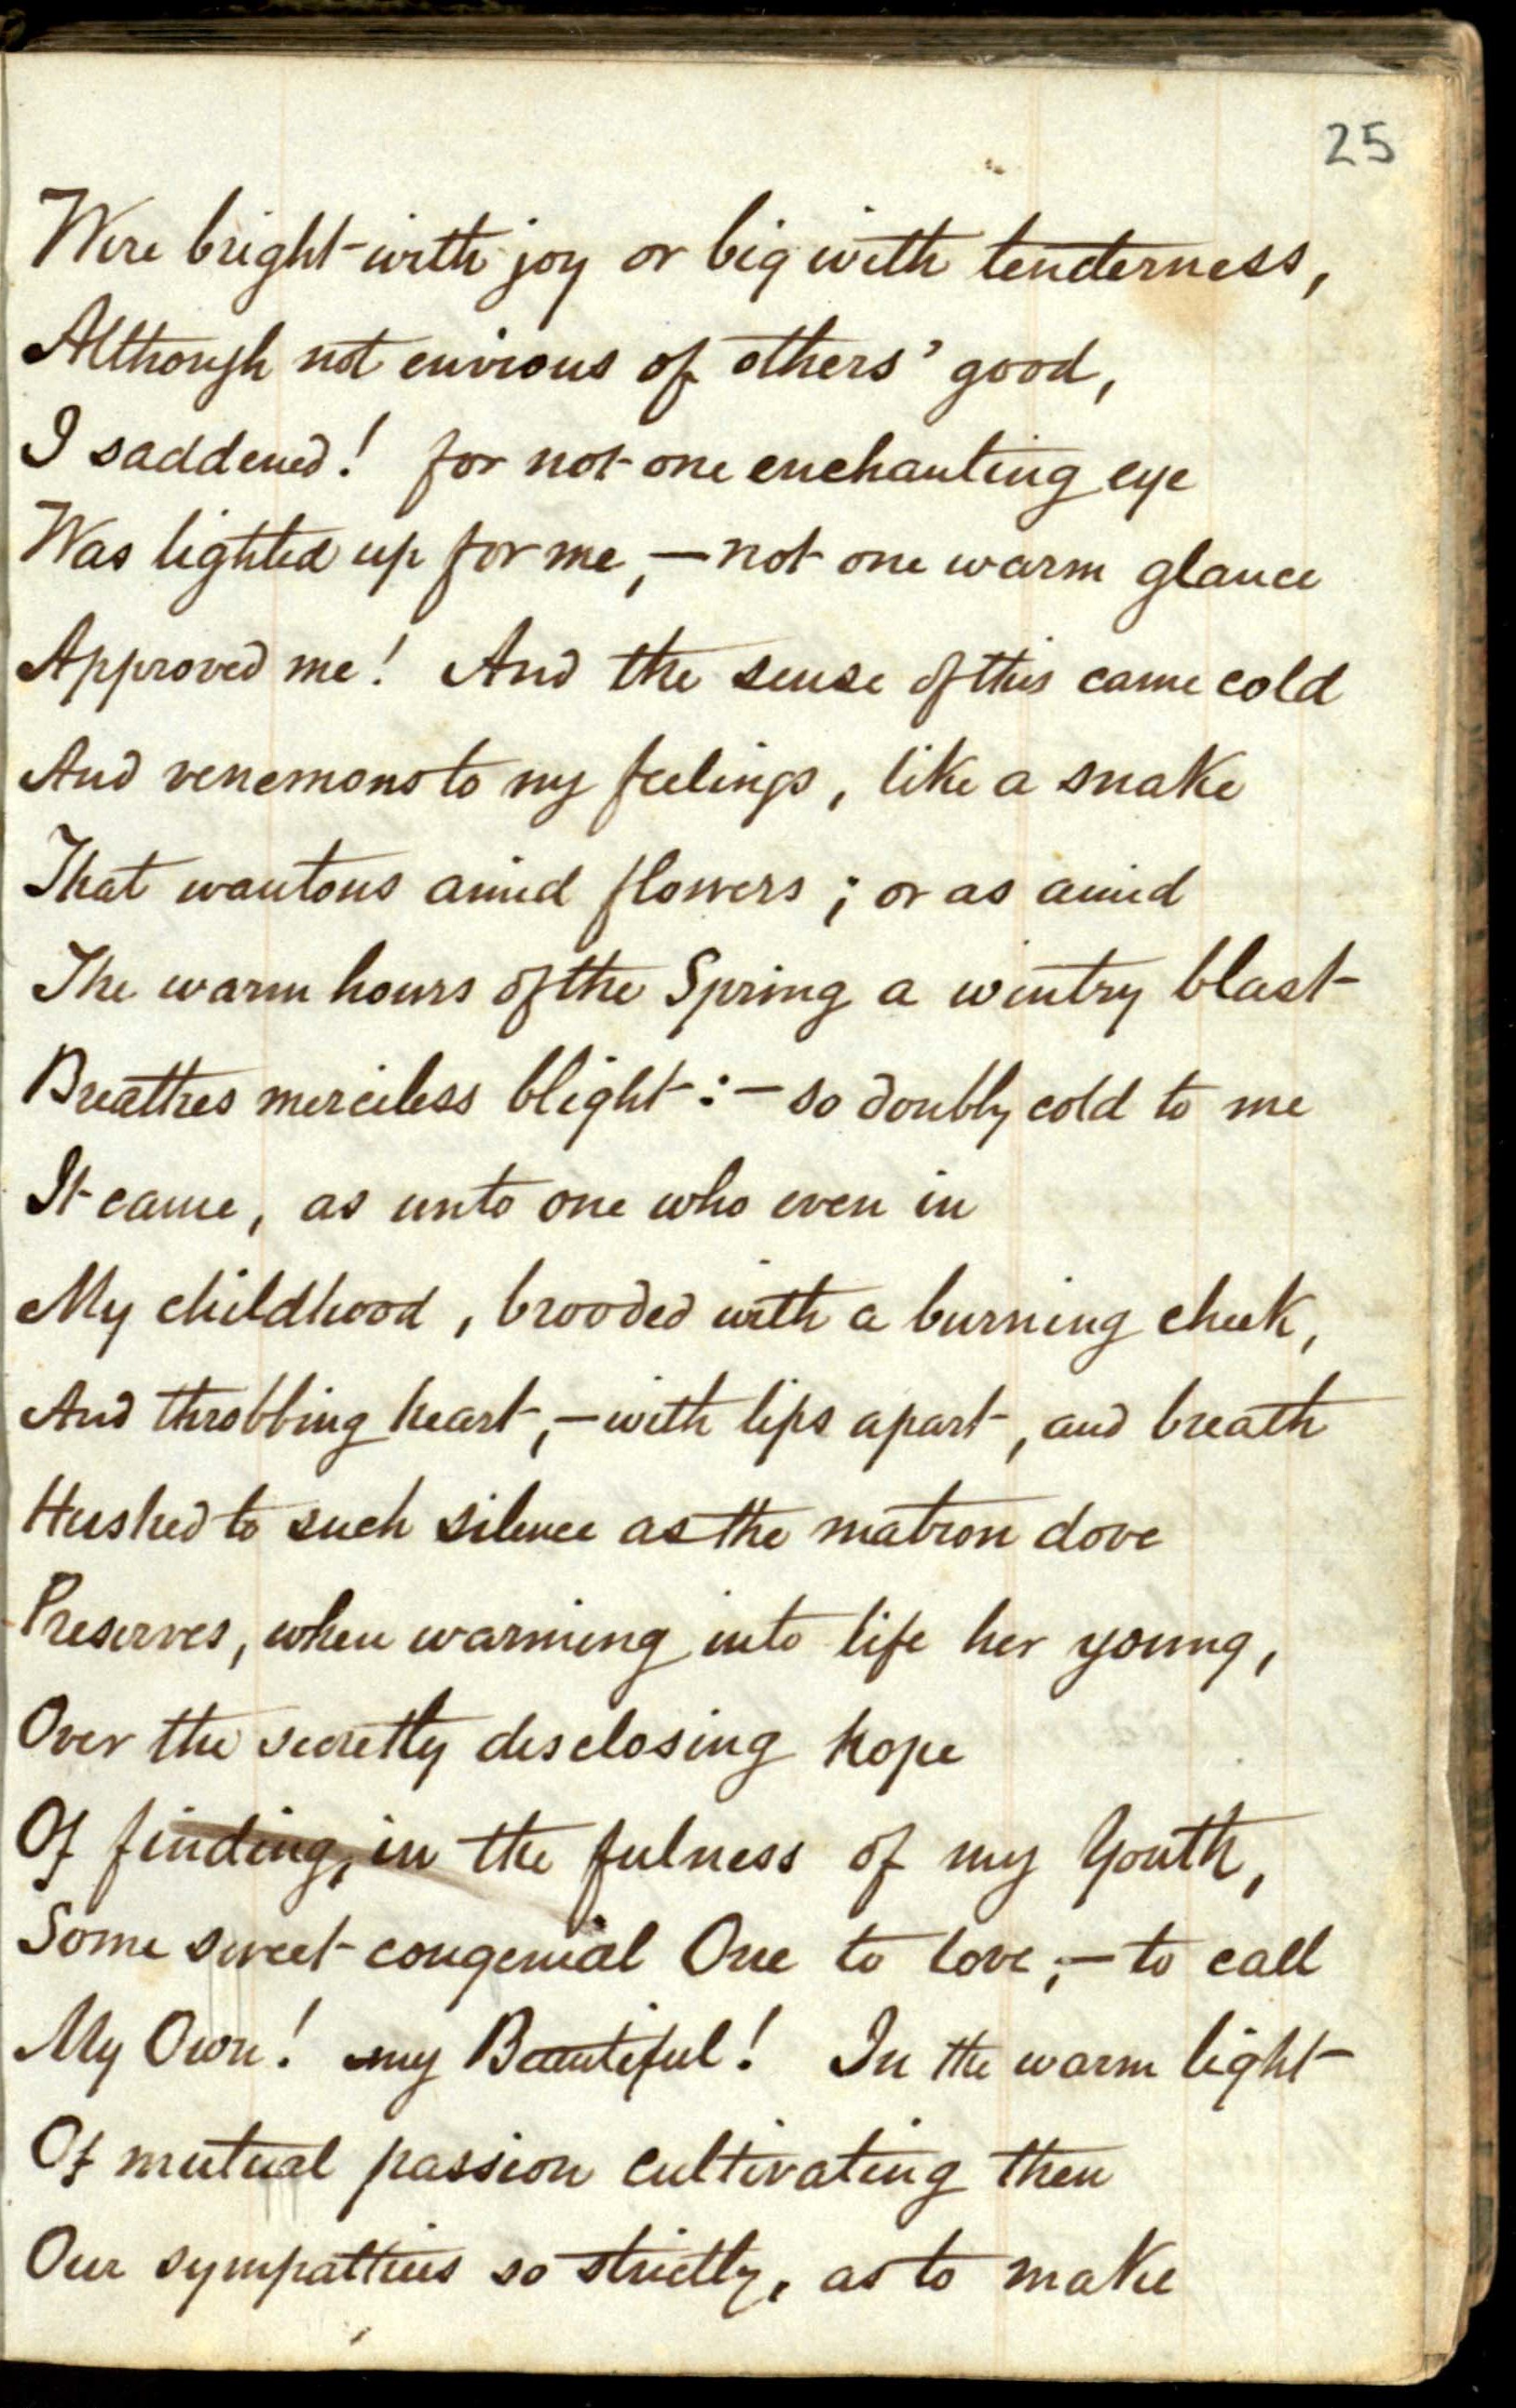 25
Were bright with joy or big with tenderness,
Although not envious of others' good,
I saddened! for not one enchanting eye
Was lighted up for me, — not one warm glance
Approved me! And the sense of this came cold
And venemous to my feelings, like a snake
That wantons amid flowers; or as amid
The warm hours of the Spring a wintry blast
Breathes merciless blight: — so doubly cold to me
It came, as unto one who even in
My childhood, brooded with a burning cheek,
And throbbing heart, — with lips apart, and breath
Hushed to such silence as the matron dove
Preserves, when warming into life her young,
Over the secretly disclosing hope
Of finding, in the fulness of my Youth,
Some sweet congenial One to love, — to call
My Own! my Beautiful! In the warm light
Of mutual passion cultivating then
Our sympathies so strictly, as to make